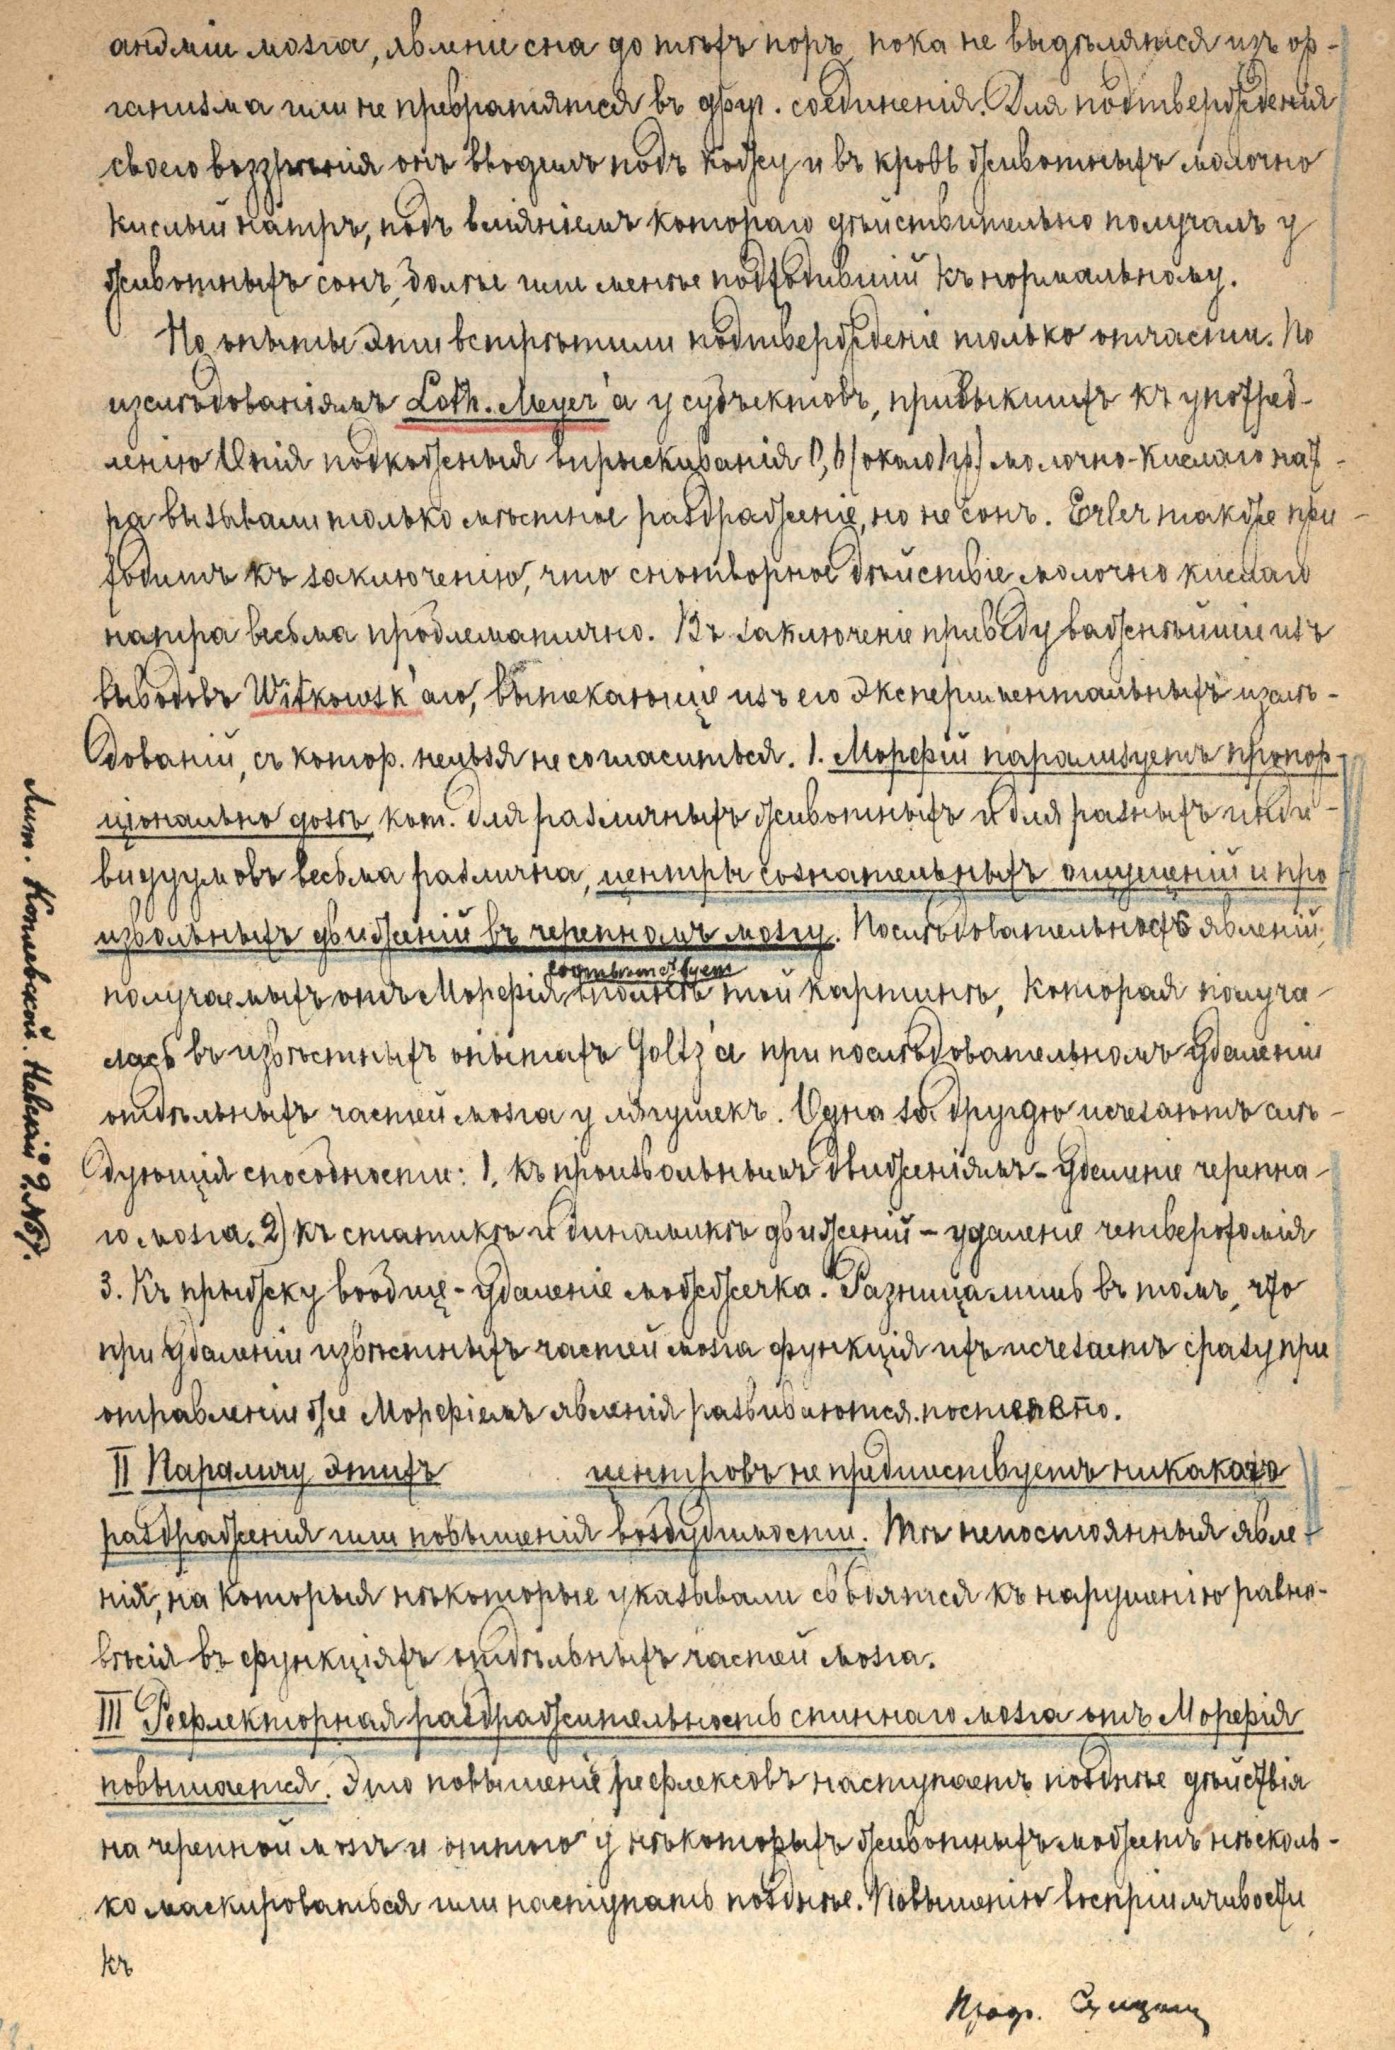 анэміи мозга, явленіе сна до тѣхъ поръ, пока не выдѣлятся изъ ор-
ганизма или не превратятся въ друг. соединенія. Для подтвержденія
своего воззрѣнія онъ вводилъ подъ кожу и въ кровь животныхъ молочно
кислый натръ, подъ вліяніемъ котораго дѣйствительно получалъ у
животныхъ сонъ, болѣе или менѣе подходившій къ нормальному.
Но опыты эти встрѣтили подтвержденіе только отчасти. По
изслѣдованіямъ Loth. Meyer'а у субъектовъ, привыкшихъ къ употреб-
ленію Опія подкожныя впрыскиванія 0,6 (около 1 гр.) молочно-кислаго нат-
ра вызывали только мѣстное раздраженіе, но не сонъ. Erler также при-
ходитъ къ заключенію, что снотворное дѣйствіе молочно кислаго
натра весьма проблематично. Въ заключеніе приведу важнѣйшіе изъ
выводовъ Witkowsk'аго, вытекающіе изъ его экспериментальныхъ изслѣ-
дованій, съ котор. нельзя не согласиться. 1. Морфій парализуетъ пропор-
ціонально дозѣ, кот. для различныхъ животныхъ и для разныхъ инди-
видуумовъ весьма различна, центры сознательныхъ ощущеній и про
извольныхъ движеній въ черепномъ мозгу. Послѣдовательность явленій,
соотвѣтствуетъ
получаемыхъ отъ Морфія вполнѣ той картинѣ, которая получа-
лась въ извѣстныхъ опытахъ Goltz'а при послѣдовательномъ удаленіи
отдѣльныхъ частей мозга у лягушекъ. Одна за другою исчезаютъ слѣ-
дующія способности: 1. къ произвольнымъ движеніямъ - удаленіе черепна-
го мозга. 2) къ статикѣ и динамикѣ движеній - удаленіе четверохолмія
3. Къ прыжку вообще - удаленіе мозжечка. Разница лишь въ томъ, что
при удаленіи извѣстныхъ частей мозга функція ихъ исчезаетъ сразу при
отравленіи же Морфіемъ явленія развиваются постепенно.
II Параличу этихъ центровъ не предшествуетъ никакого
раздраженія или повышенія возбудимости. Тѣ непостоянныя явле-
нія, на которыя нѣкоторые указывали сводятся къ нарушенію равно-
вѣсія въ функціяхъ отдѣльныхъ частей мозга.
III Рефлекторная раздражительность спиннаго мозга отъ Морфія
повышается. Это повышеніе рефлексовъ наступаетъ позднѣе дѣйствія
на черепной мозгъ и оттого у нѣкоторыхъ животныхъ можетъ нѣсколь-
ко маскироваться или наступать позднѣе. Повышенію воспріимчивости
къ
Проф. Сущинск
Лит. Коплевской. Невскій 9, № 8.